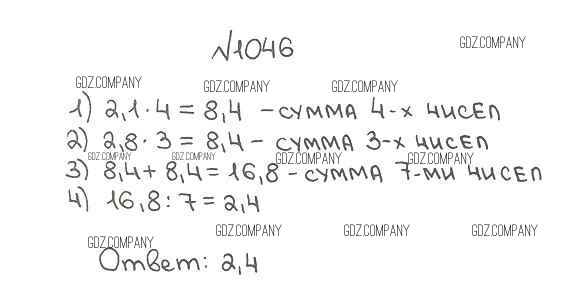 №1046
GDZ.COMPANY
GDZ.COMPANY GDZ.COMPANY GDZ.COMPANY
1) 2,1·4 = 8,4 - сумма 4-х чисел
2) 2,8·3 = 8,4 - сумма 3-х чисел
GDZ.COMPANY GDZ.COMPANY GDZ.COMPANY GDZ.COMPANY
3) 8,4 + 8,4 = 16,8 - сумма 7-ми чисел
4) 16,8 : 7 = 2,4
GDZ.COMPANY GDZ.COMPANY GDZ.COMPANY GDZ.COMPANY
Ответ: 2,4